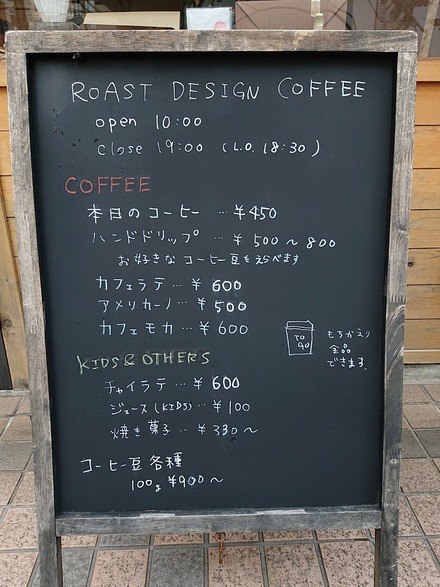 ROAST DESIGN COFFEE
open 10:00
close 19:00 (L.O. 18:30)
COFFEE
本日のコーヒー … ¥450
ハンドドリップ … ¥500〜800
お好きなコーヒー豆をえらべます
カフェラテ … ¥600
アメリカーノ … ¥500
カフェモカ … ¥600
TO GO
もちかえり
全品
できます.
KIDS & OTHERS
チャイラテ … ¥600
ジュース(KIDS) … ¥100
焼き菓子 … ¥330〜
コーヒー豆各種
100g ¥900〜